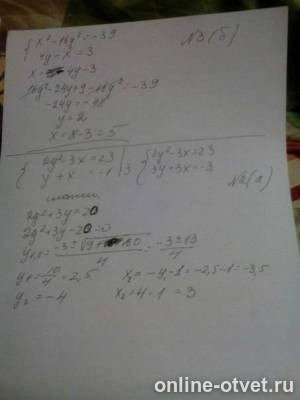 №3(б)
{ x² - 16y² = -39
4y - x = 3
x = 4y - 3
16y² - 24y + 9 - 16y² = -39
-24y = -48
y = 2
x = 8 - 3 = 5
{ 2y² - 3x = 23
y + x = -1 | 3
{ 2y² - 3x = 23
3y + 3x = -3
№2(а)
2y² + 3y = 20
2y² + 3y - 20 = 0
y₁,₂ = = -3 ± 13 / 4
y₁ = 10/4 = 2,5 x₂ = -y - 1 = -2,5 - 1 = -3,5
y₂ = -4 x₂ = 4 - 1 = 3
online-otvet.ru